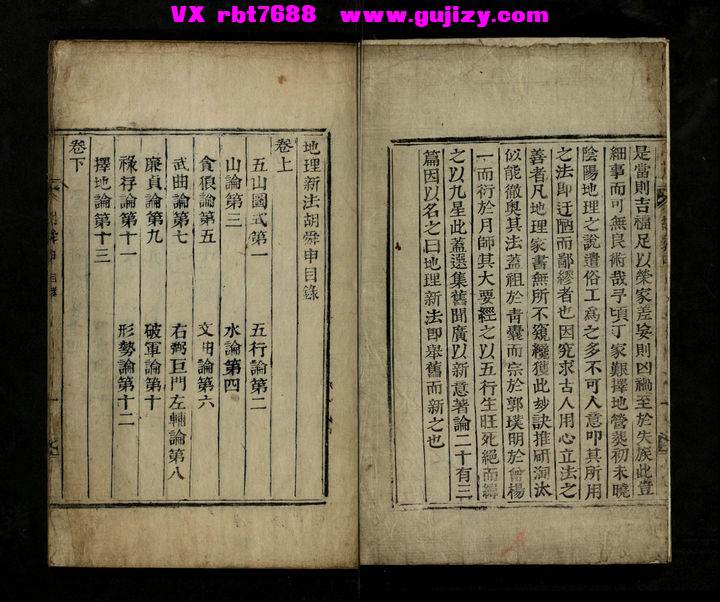 VX rbt7688 www.gujizy.com
是當則吉福足以榮家差妄則凶禍至於失族此豈
細事而可無良術哉予頃丁家艱擇地營葬初未曉
陰陽地理之說遣俗工為之多不可人意叩其所用
之法卽迂陋而鄙繆者也因究求古人用心立法之
善者凡地理家書無所不窺纔獲此妙訣推硏淘汰
似能徹奧其法蓋祖於青囊而宗於郭璞明於曾楊
一而衍於月師其大要經之以五行生旺死絕而緯
之以九星此蓋選集舊聞廣以新意著論二十有三
篇因以名之曰地理新法卽舉舊而新之也
地理新法胡舜申目錄
卷上
五山圖式第一 五行論第二
山論第三 水論第四
貪狼論第五 文曲論第六
武曲論第七 右弼巨門左輔論第八
廉貞論第九 破軍論第十
祿存論第十一 形勢論第十二
擇地論第十三
卷下